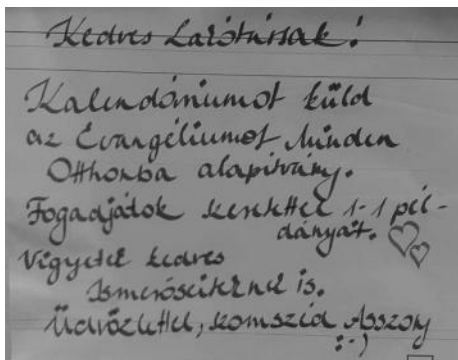 Kedves Lakótársak!
Kalendáriumot küld
az Évangéliumot Minden
Otthonba alapítvány.
Fogadjátok szeretettel 1-1 pél-
dányát.
Vigyetek kedves
Ismerőseiteknek is.
Üdvözlettel, szomszéd Asszony
:-)